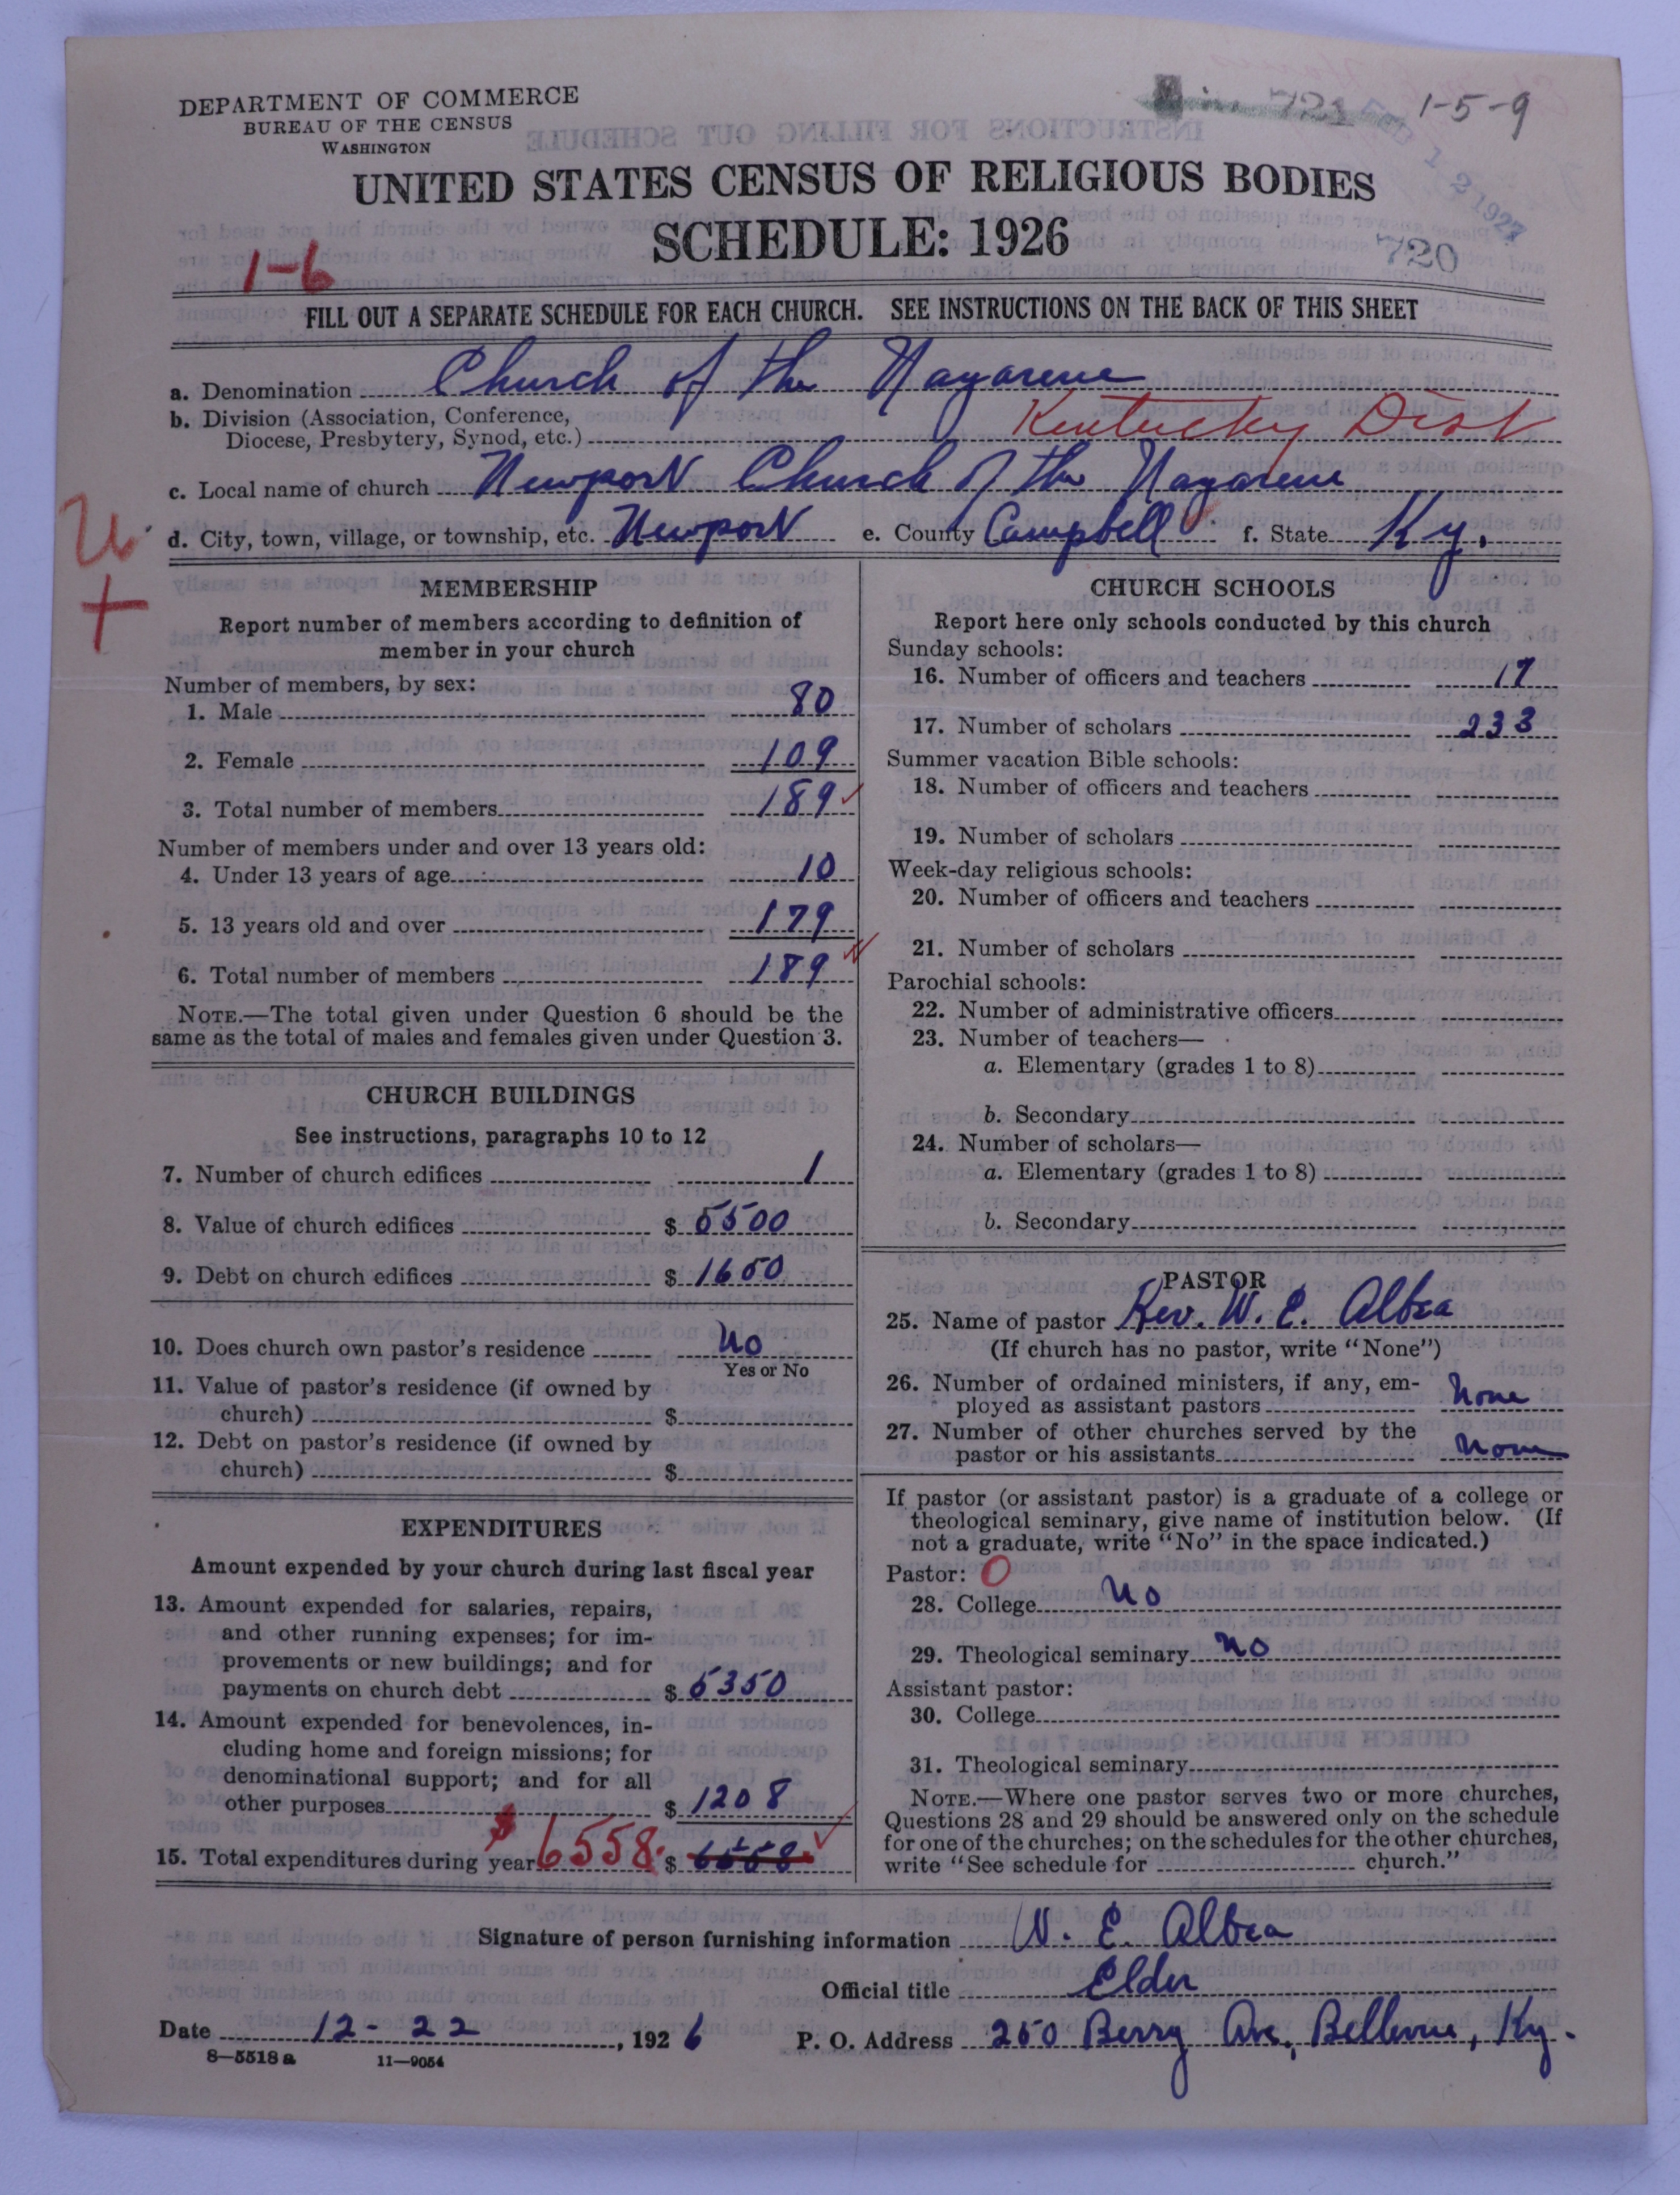 DEPARTMENT OF COMMERCE
BUREAU OF THE CENSUS
WASHINGTON
721
1-5-9
FEB 12 1927
UNITED STATES CENSUS OF RELIGIOUS BODIES
SCHEDULE: 1926
720
1-6
FILL OUT A SEPARATE SCHEDULE FOR EACH CHURCH. SEE INSTRUCTIONS ON THE BACK OF THIS SHEET
a. Denomination Church of the Nazarene
b. Division (Association, Conference,
Diocese, Presbytery, Synod, etc.) Kentucky Dist
c. Local name of church Newport Church of the Nazarene
d. City, town, village, or township, etc. Newport e. County Campbell f. State Ky.
MEMBERSHIP
Report number of members according to definition of
member in your church
Number of members, by sex:
1. Male 80
2. Female 109
3. Total number of members 189
Number of members under and over 13 years old:
4. Under 13 years of age 10
5. 13 years old and over 179
6. Total number of members 189
NOTE.—The total given under Question 6 should be the
same as the total of males and females given under Question 3.
CHURCH BUILDINGS
See instructions, paragraphs 10 to 12
7. Number of church edifices 1
8. Value of church edifices $ 5500
9. Debt on church edifices $ 1650
10. Does church own pastor's residence No
Yes or No
11. Value of pastor's residence (if owned by
church) $
12. Debt on pastor's residence (if owned by
church) $
EXPENDITURES
Amount expended by your church during last fiscal year
13. Amount expended for salaries, repairs,
and other running expenses; for im-
provements or new buildings; and for
payments on church debt $ 5350
14. Amount expended for benevolences, in-
cluding home and foreign missions; for
denominational support; and for all
other purposes $ 1208
15. Total expenditures during year $ 6558. $ 6558
CHURCH SCHOOLS
Report here only schools conducted by this church
Sunday schools:
16. Number of officers and teachers 17
17. Number of scholars 233
Summer vacation Bible schools:
18. Number of officers and teachers
19. Number of scholars
Week-day religious schools:
20. Number of officers and teachers
21. Number of scholars
Parochial schools:
22. Number of administrative officers
23. Number of teachers—
a. Elementary (grades 1 to 8)
b. Secondary
24. Number of scholars—
a. Elementary (grades 1 to 8)
b. Secondary
PASTOR
25. Name of pastor Rev. W. E. Albea
(If church has no pastor, write "None")
26. Number of ordained ministers, if any, em-
ployed as assistant pastors None
27. Number of other churches served by the
pastor or his assistants None
If pastor (or assistant pastor) is a graduate of a college or
theological seminary, give name of institution below. (If
not a graduate, write "No" in the space indicated.)
Pastor: O
28. College No
29. Theological seminary No
Assistant pastor:
30. College
31. Theological seminary
NOTE.—Where one pastor serves two or more churches,
Questions 28 and 29 should be answered only on the schedule
for one of the churches; on the schedules for the other churches,
write "See schedule for church."
Signature of person furnishing information W. E. Albea
Official title Elder
Date 12-22, 1926 P. O. Address 250 Berry Ave, Bellevue, Ky.
8—5518 a 11—9054